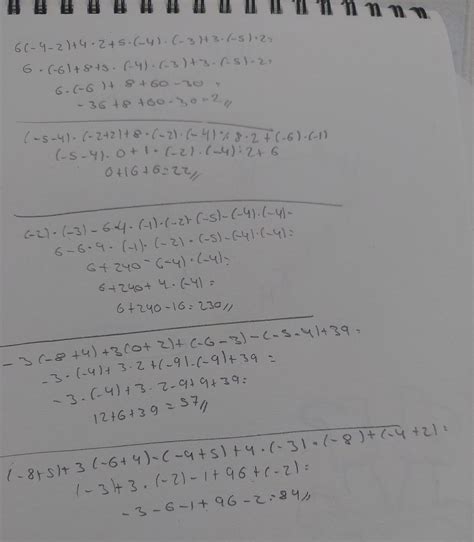 6(-4-2)+4·2+5·(-4)·(-3)+3·(-5)·2=
6·(-6)+8+5·(-4)·(-3)+3·(-5)·2=
6·(-6)+8+60-30=
-36+8+60-30=2//
(-5-4)·(-2+2)+8·(-2)·(-4):8·2+(-6)·(-1)
(-5-4)·0+1·(-2)·(-4)·2+6
0+16+6=22//
(-2)·(-3)-6·4·(-1)·(-2)·(-5)-(-4)·(-4)=
6-6·4·(-1)·(-2)·(-5)-(-4)·(-4)=
6+240-(-4)·(-4)=
6+240+4·(-4)=
6+240-16=230//
-3(-8+4)+3(0+2)+(-6-3)-(-5-4)+39=
-3·(-4)+3·2+(-9)-(-9)+39=
-3·(-4)+3·2-9+9+39=
12+6+39=57//
(-8+5)+3(-6+4)-(-4+5)+4·(-3)·(-8)+(-4+2)=
(-3)+3·(-2)-1+96+(-2)=
-3-6-1+96-2=84//